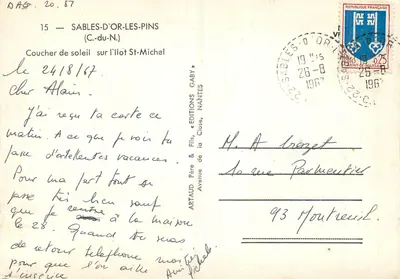 DAST. 20. 51
15 — SABLES-D'OR-LES-PINS
(C.-du-N.)
Coucher de soleil sur l'îlot St-Michel
le 24/8/67
Cher Alain.
J'ai reçu ta carte ce
matin. A ce que je vois tu
passe d'excellentes vacances.
Pour ma part tout se
passe très bien sauf
que je rentre à la maison
le 28. Quand tu seras
de retour téléphone moi
pour que l'on aille
à
Amitié
ARTAUD Père & Fils, "EDITIONS GABY"
Avenue de la Close, NANTES
REPUBLIQUE FRANÇAISE
0,25
SABLES D'OR
26-8
196
22
26-8
196
M. A
10 rue Parmentier
93 Montreuil